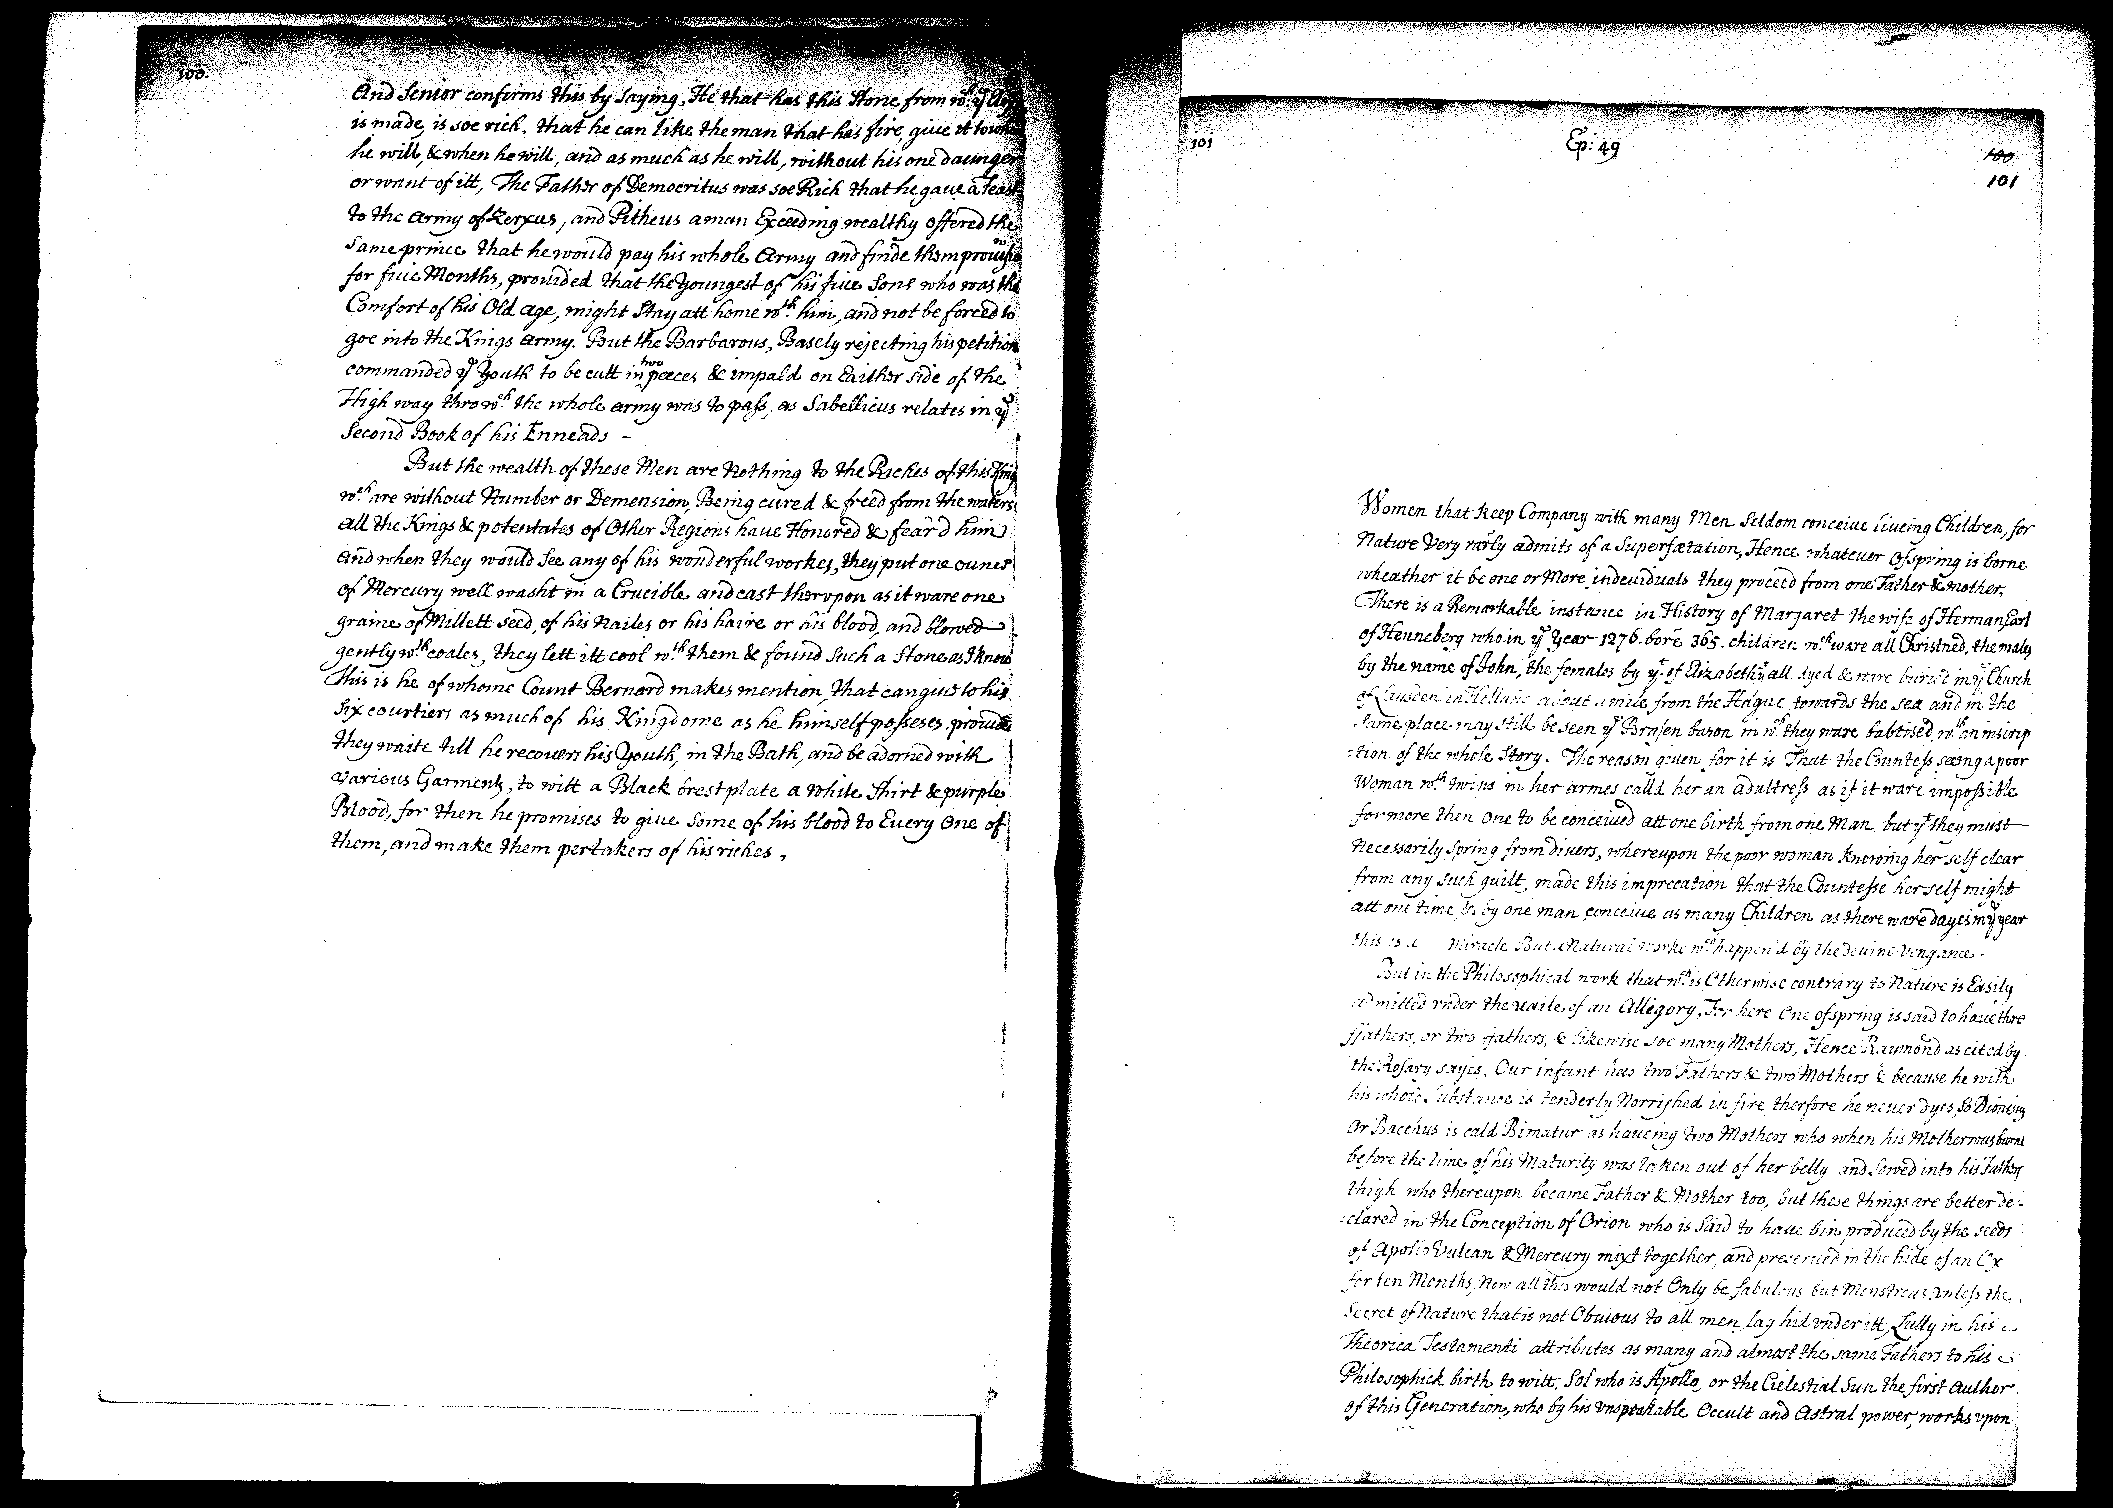 100.
And Senior confirms this by saying, He that has this Stone from wch ye
is made, is soe rich, that he can like the man that has fire, give it to
he will, & when he will, and as much as he will, without his one daunger
or want of itt, The Father of Democritus was soe Rich that he gave a feast
to the Army of Zerxus, and Pitheus a man Exceeding wealthy offered the
same prince that he would pay his whole Army and finde them
for five Months, provided that the Youngest of his five Sons who was the
Comfort of his Old age, might Stay att home wth him, and not be forced to
goe into the Kings Army. But the Barbarous, Basely rejecting his petition
commanded ye Youth to be cutt in two peeces & impald on Eaither side of the
High way throwh the whole army was to pass, as Sabellicus relates in ye
Second Book of his Enneads -
But the wealth of these Men are Nothing to the Riches of this King
wch are without Number or Demension, Being cured & freed from the waters
all the Kings & potentates of Other Regions have Honored & fear'd him
And when they would See any of his wonderful workes, they put one ounes
of Mercury well washt in a Crucible and cast therupon as it ware one
graine of Millett Seed, of his Nailes or his haire or his blood, and blowed
gently wth coales, they lett itt cool wth them & found Such a Stone as I know
This is he of whome Count Bernard makes mention, that can give to his
Six courtiers as much of his Kingdome as he himself posseses,
they waite till he recovers his Youth, in the Bath, and be adorned with
various Garments, to witt a Black brestplate a white Shirt & purple
Blood, for then he promises to give Some of his blood to Every One of
them, and make them pertakers of his riches,
101
Ep: 49
100
101
Women that Keep Company with many Men Seldom conceive liveing Children, for
Nature Very rarly admits of a Superfætation, Hence whatever Ofspring is borne
wheather it be one or More indeviduals they proceed from one Father & mother.
There is a Remarkable instance in History of Margaret the wife of Herman Earl
of Henneberg who in ye Year 1276. bore 365. children wch ware all Christned, the males
by the name of John, the females by yt of Elizabeth, all dyed & ware buried in ye Church
of in Holland about a mile from the Hague, towards the sea and in the
Same place may still be seen ye Brasen bason in wch they ware babtised, wth an inscrip
-tion of the whole Story. The reason given for it is That the Countess seeing a poor
Woman wth twins in her armes calld her an adultress as if it ware impossible
for more then One to be conceived att one birth from one Man but yt they must
necessarily Spring from divers, whereupon the poor woman knowing her self clear
from any such guilt, made this imprecation that the Countesse her self might
att one time & by one man conceive as many Children as there ware dayes in ye year
this is a Miracle But a Natural worke wch happen'd by the devine vengance.
But in the Philosophical work that wch is Otherwise contrary to Nature is Easily
admitted under the vaile of an Allegory, For here One ofspring is said to have thre
ffathers, or two fathers, & likewise soe many Mothers, Hence Raymond as cited by
the Rosary sayes. Our infant has two Fathers & two Mothers & because he with
his whole Substance is tenderly Norrished in fire therfore he never dyes, So Dionisus
Or Bacchus is cald Bimatur as haveing two Mothers who when his Mother was burnt
before the time of his Maturity was taken out of her belly and Sowed into his Fathers
thigh who thereupon became Father & Mother too, but these things are better de-
-clared in the Conception of Orion who is Said to have bin produced by the seeds
of Apollo Vulcan & Mercury mixt together, and preserved in the hide of an Ox
for ten Months, Now all this would not Only be fabulous but Monstrous, unless the
Secret of Nature that is not Obvious to all men, lay hid under itt, Lully in his
Theorica Testamenti attributes as many and almost the same Fathers to his
Philosophick birth to witt, Sol who is Apollo, or the Celestial Sun the first Author
of this Generation, who by his Unspeakable Occult and Astral power, works upon